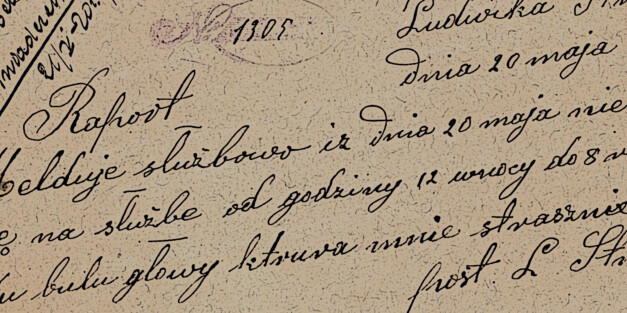 1305
21/V-20
Ludwika
dnia 20 maja
Raport
Melduje służbowo iz dnia 20 maja nie
na służbe od godziny 12 wnocy do 8 r
bulu głowy ktrura mnie strasznie
post. L St